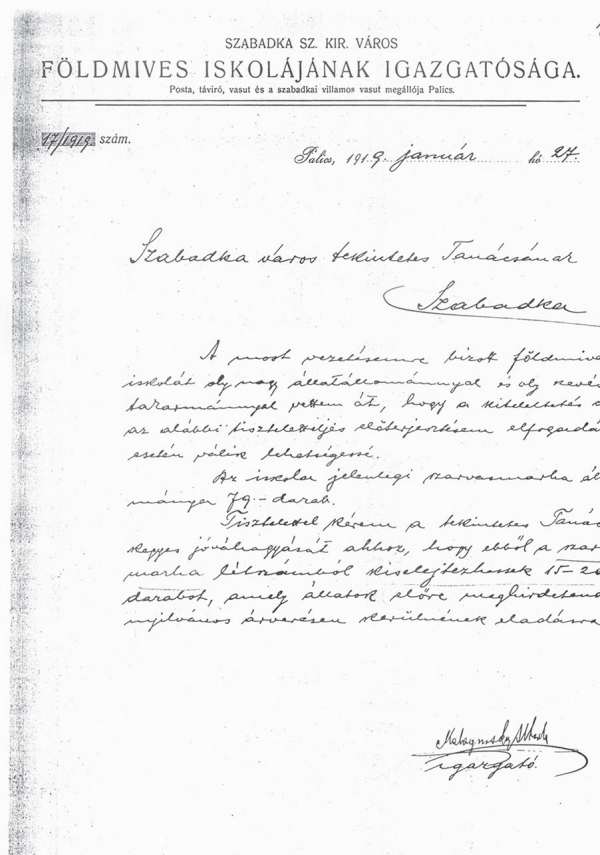 SZABADKA SZ. KIR. VÁROS
FÖLDMIVES ISKOLÁJÁNAK IGAZGATÓSÁGA.
Posta, táviró, vasut és a szabadkai villamos vasut megállója Palics.
17/1919. szám.
Palics, 1919. január hó 27.
Szabadka város tekintetes Tanácsának
Szabadka
A most vezetésemre bizott földmive
iskolát oly nagy állatállománnyal és oly kevés
takarmánnyal vettem át, hogy a kiteleltetés
az alábbi tiszteletteljes előterjesztésem elfogadá
esetén válik lehetségessé.
Az iskola jelenlegi szarvasmarha ál
mánya 79.- darab.
Tisztelettel kérem a tekintetes Tanác
kegyes jóváhagyását ahhoz, hogy ebből a szar
marha létszámból kiselejtezhessek 15-20
darabot, amely állatok előre meghirdetend
nyilvános árverésen kerülnének eladásra
igazgató.